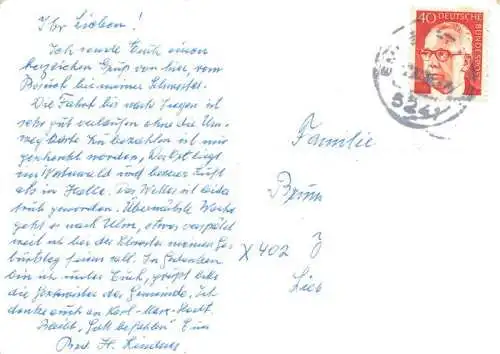 Ihr Lieben!
Ich sende Euch einen
herzlichen Gruß von hier, vom
Besuch bei meiner Schwester.
Die Fahrt bis nach Siegen ist
sehr gut verlaufen ohne die Um-
weg Karte zu bezahlen ist mir
geschenkt worden, liegt
im Westerwald und bessere Luft
als in Halle. Das Wetter ist leider
trüb geworden. Übernächste Woche
geht es nach Ulm, etwas verspätet
weil ich bei der Schwester meinen Ge-
burtstag feiern soll. In Gedanken
bin ich unter Euch, grüßt alle
die Geschwister der Gemeinde. Ich
denke auch an Karl-Marx-Stadt.
Seid "Gott befohlen" Eure
H.
40 DEUTSCHE BUNDESPOST
524
Familie
Brunn
X 402